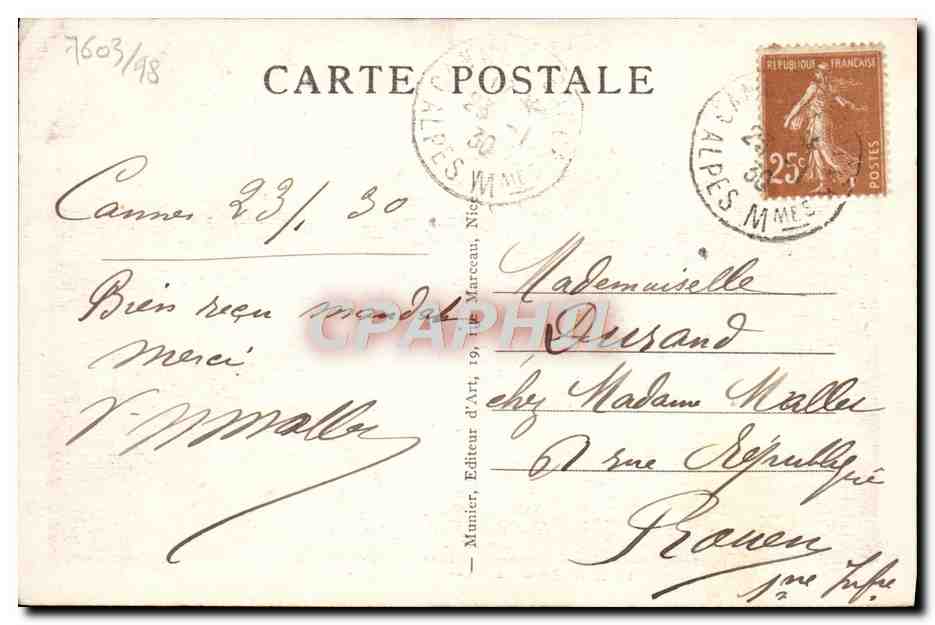 7603/98
CARTE POSTALE
RÉPUBLIQUE FRANÇAISE
25c
POSTES
ALPES Mmes
23
30
ALPES Mmes
30
Cannes 23/1 30
Bien reçu mandat
merci
Mademoiselle
Durand
chez Madame Maller
rue République
Rouen
Sne Infre
— Munier, Editeur d'Art, 19, rue Marceau, Nice
CPAPHIL